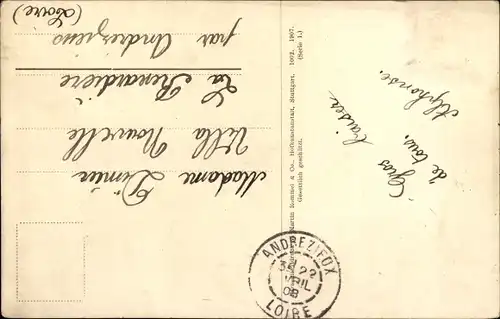 Gros baisers
de tous.
Alphonse.
Martin Rommel & Co., Hofkunstanstalt, Stuttgart. 1692, 1907.
Gesetzlich geschützt. (Serie I.)
Madame
Villa Nouvelle
La Renardière
par Andrézieux
(Loire)
ANDREZIEUX
22
AVRIL
08
LOIRE